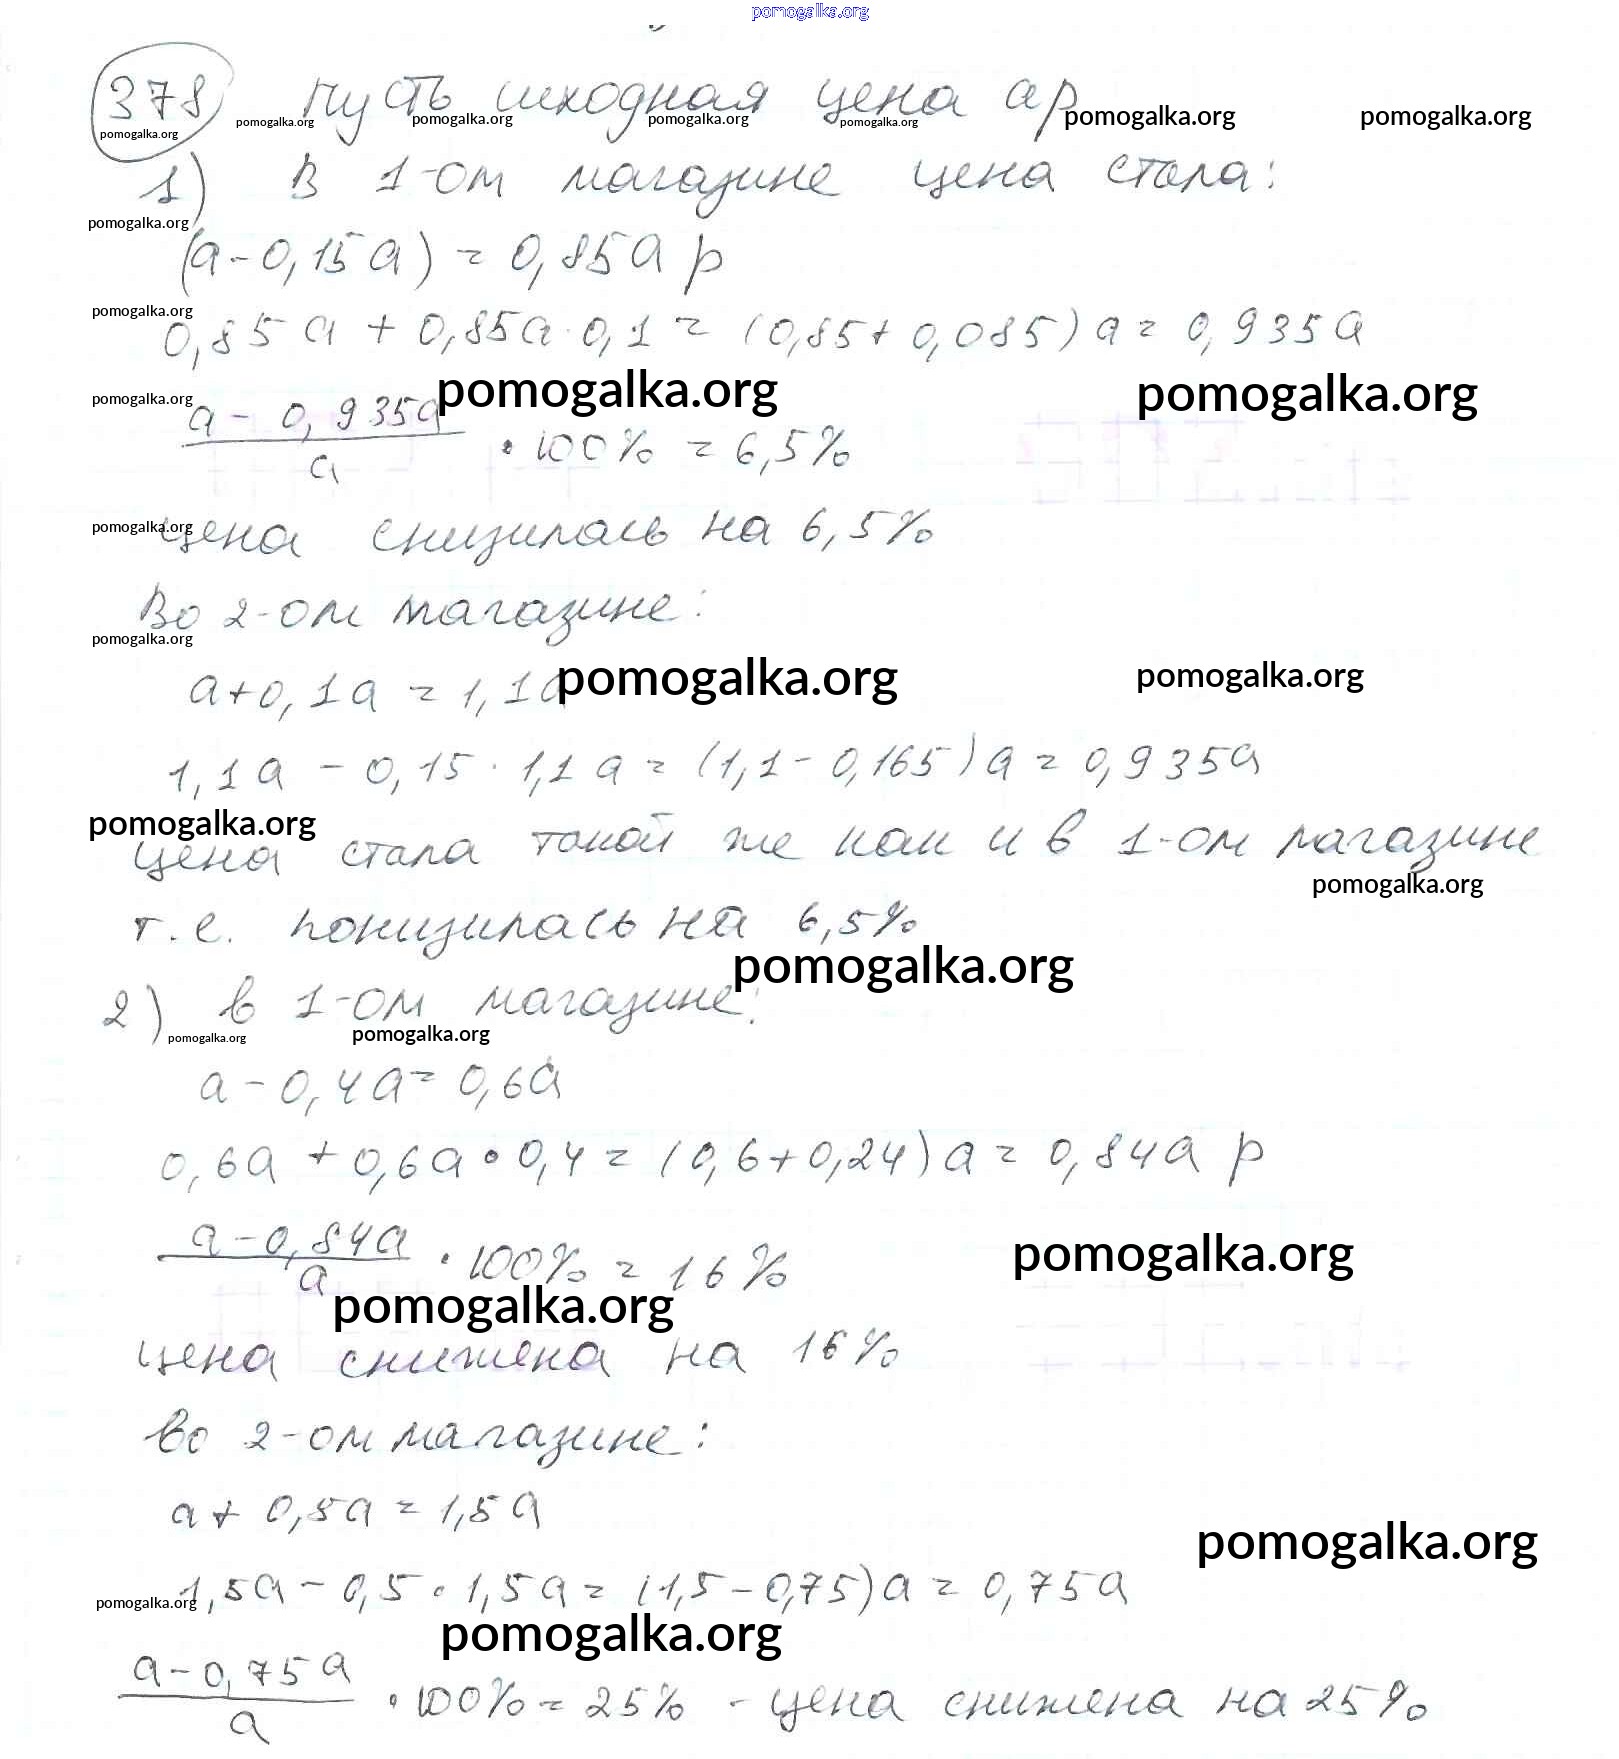 pomogalka.org
378 Пусть исходная цена а р
pomogalka.org pomogalka.org pomogalka.org pomogalka.org pomogalka.org pomogalka.org pomogalka.org
1) В 1-ом магазине цена стала:
pomogalka.org
(а - 0,15а) = 0,85а р
pomogalka.org
0,85а + 0,85а · 0,1 = (0,85 + 0,085)а = 0,935а
pomogalka.org pomogalka.org pomogalka.org
(а - 0,935а)/а · 100% = 6,5%
pomogalka.org
цена снизилась на 6,5%
Во 2-ом магазине:
pomogalka.org
а + 0,1а = 1,1а
pomogalka.org pomogalka.org
1,1а - 0,15 · 1,1а = (1,1 - 0,165)а = 0,935а
pomogalka.org
цена стала такой же как и в 1-ом магазине
pomogalka.org
т.е. понизилась на 6,5%
pomogalka.org
2) в 1-ом магазине:
pomogalka.org pomogalka.org
а - 0,4а = 0,6а
0,6а + 0,6а · 0,4 = (0,6 + 0,24)а = 0,84а р
(а - 0,84а)/а · 100% = 16%
pomogalka.org
pomogalka.org
цена снижена на 16%
во 2-ом магазине:
а + 0,5а = 1,5а
pomogalka.org
1,5а - 0,5 · 1,5а = (1,5 - 0,75)а = 0,75а
pomogalka.org
pomogalka.org
(а - 0,75а)/а · 100% = 25% - цена снижена на 25%